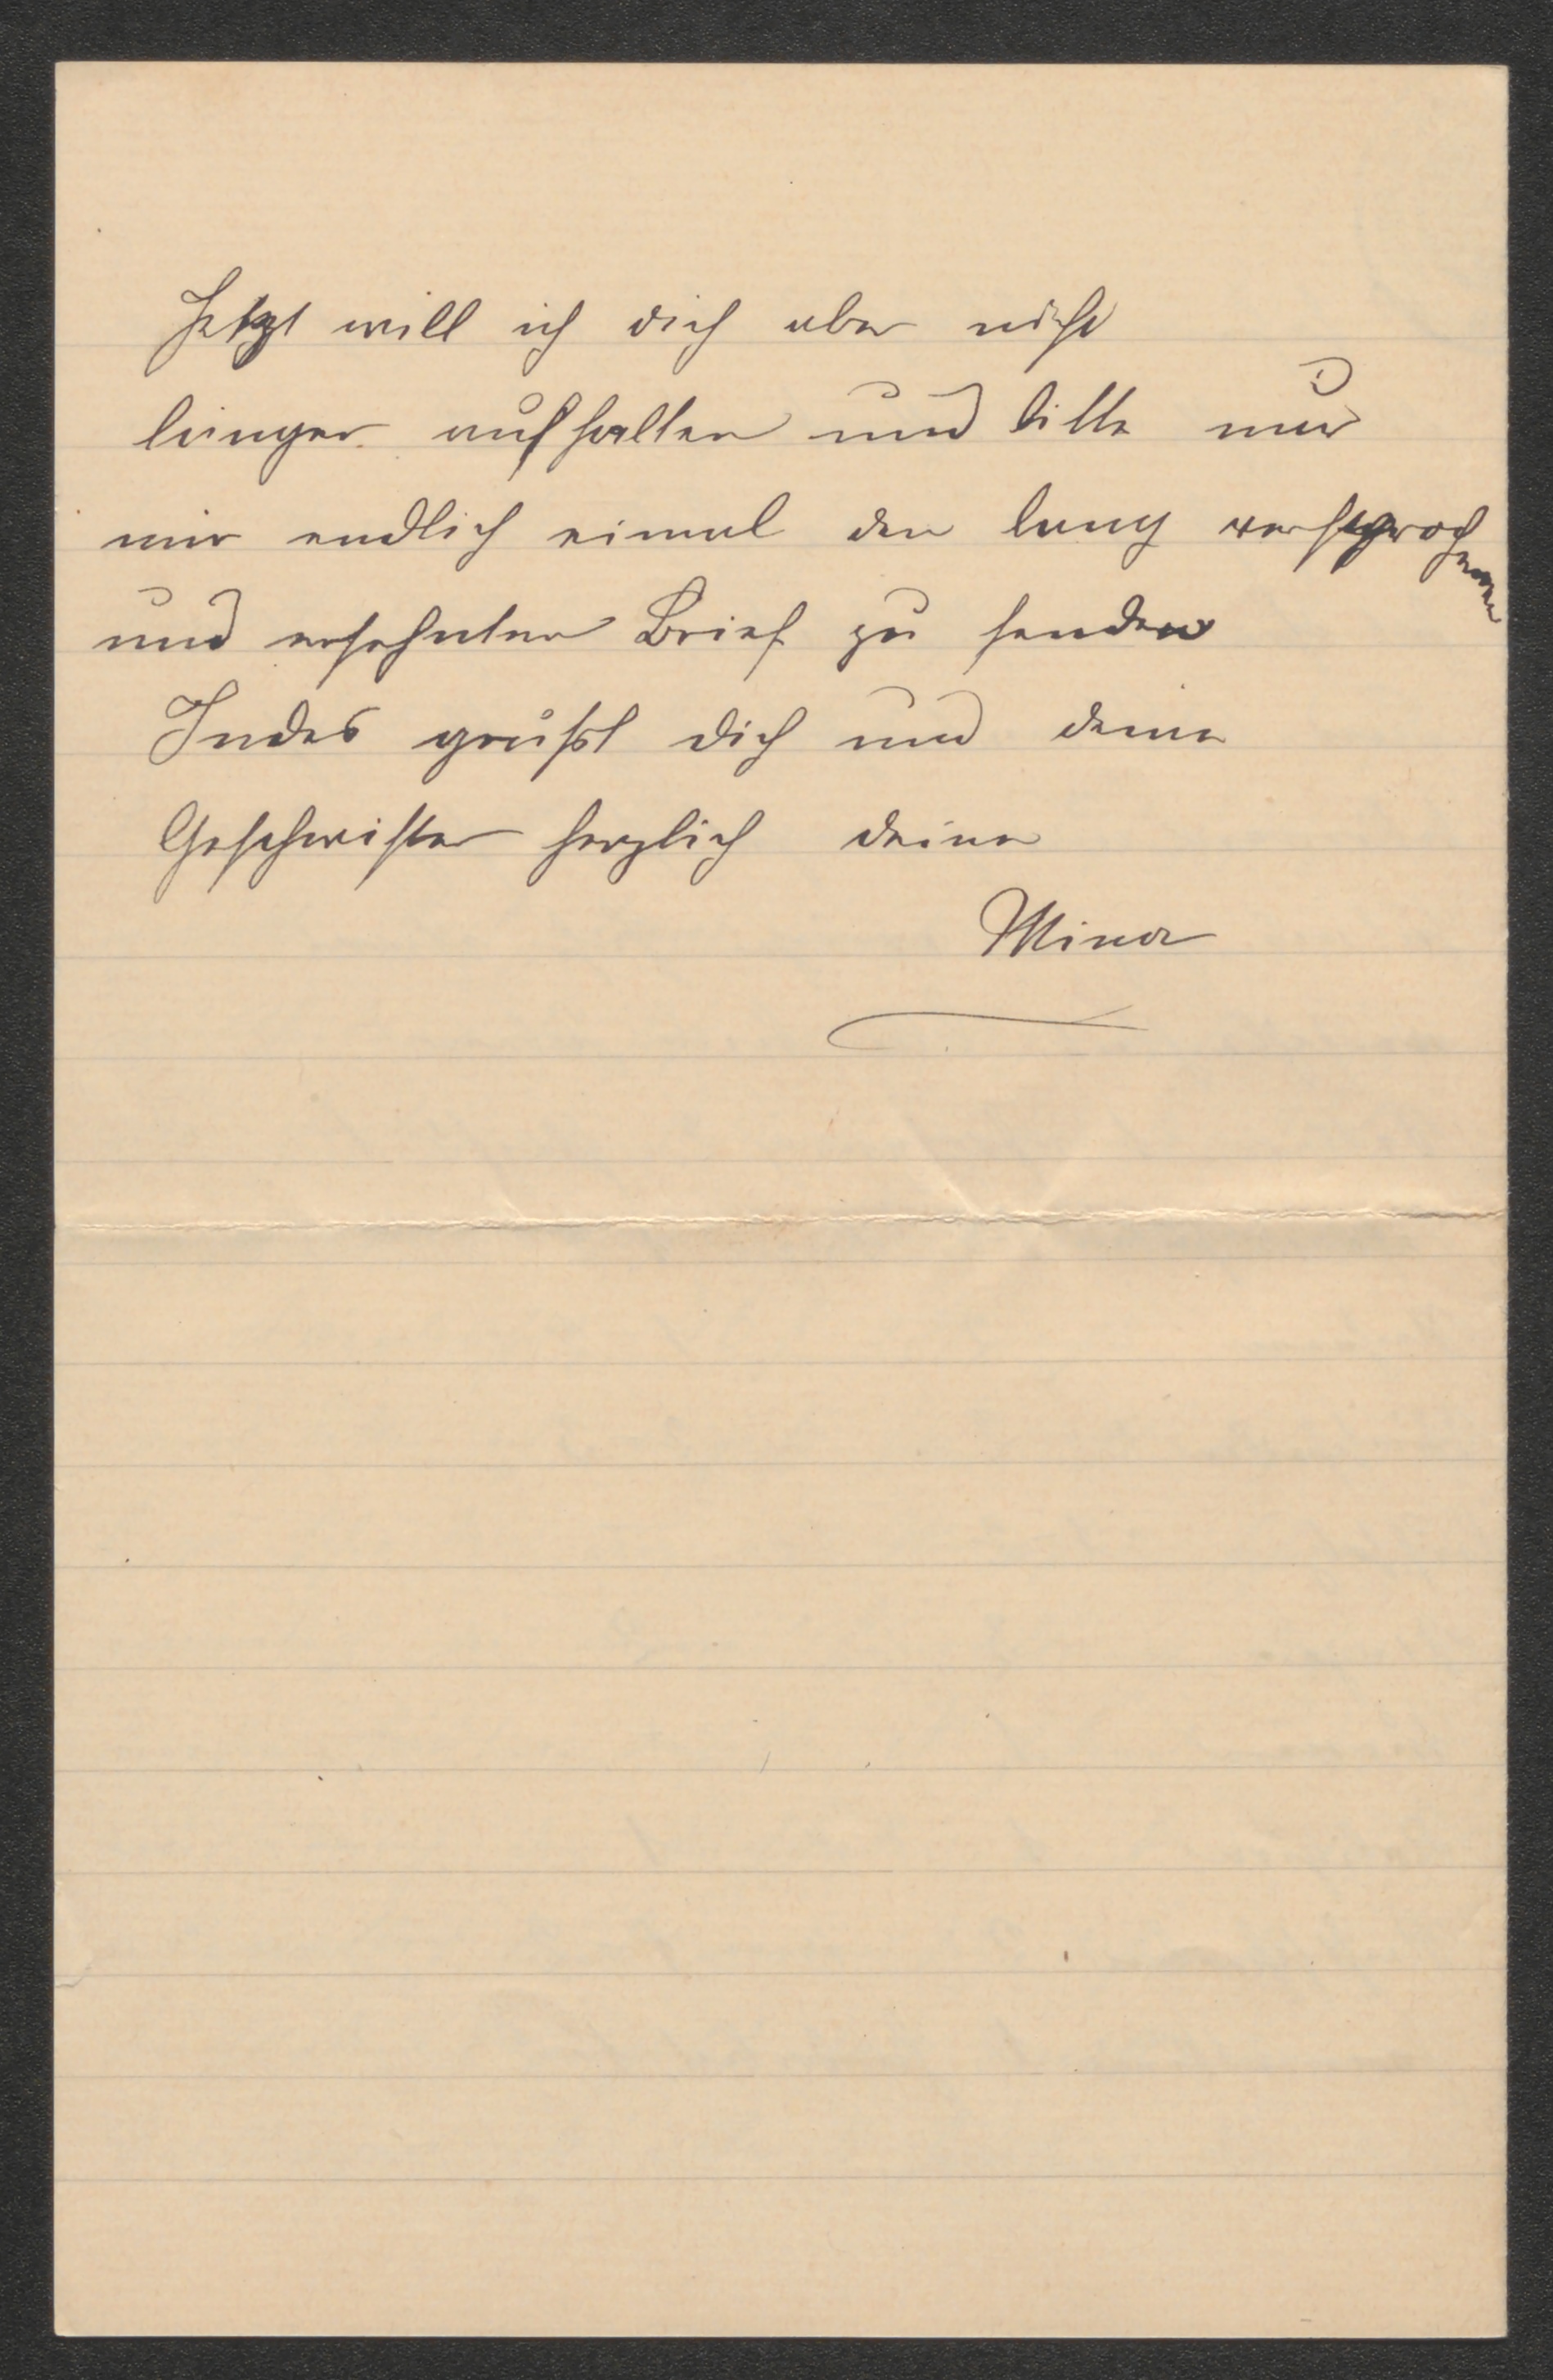 Jetzt will ich dich aber nicht
länger aufhalten und bitte nur
mir endlich einmal den lang versprochenen
und ersehnten Brief zu senden
Indes grüßt dich und deine
Geschwister herzlich deine
Mina